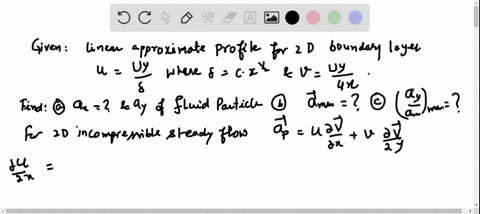 Given: linear approximate profile for 2D boundary layer
u = Uy/δ where δ = c·x^½ & v = uy/4x.
Find: ⓐ ax = ? & ay of fluid Particle ⓑ a⃗max = ? ⓒ (ay/ax)max = ?
For 2D incompressible steady flow a⃗p = u ∂V⃗/∂x + v ∂V⃗/∂y
∂u/∂x =